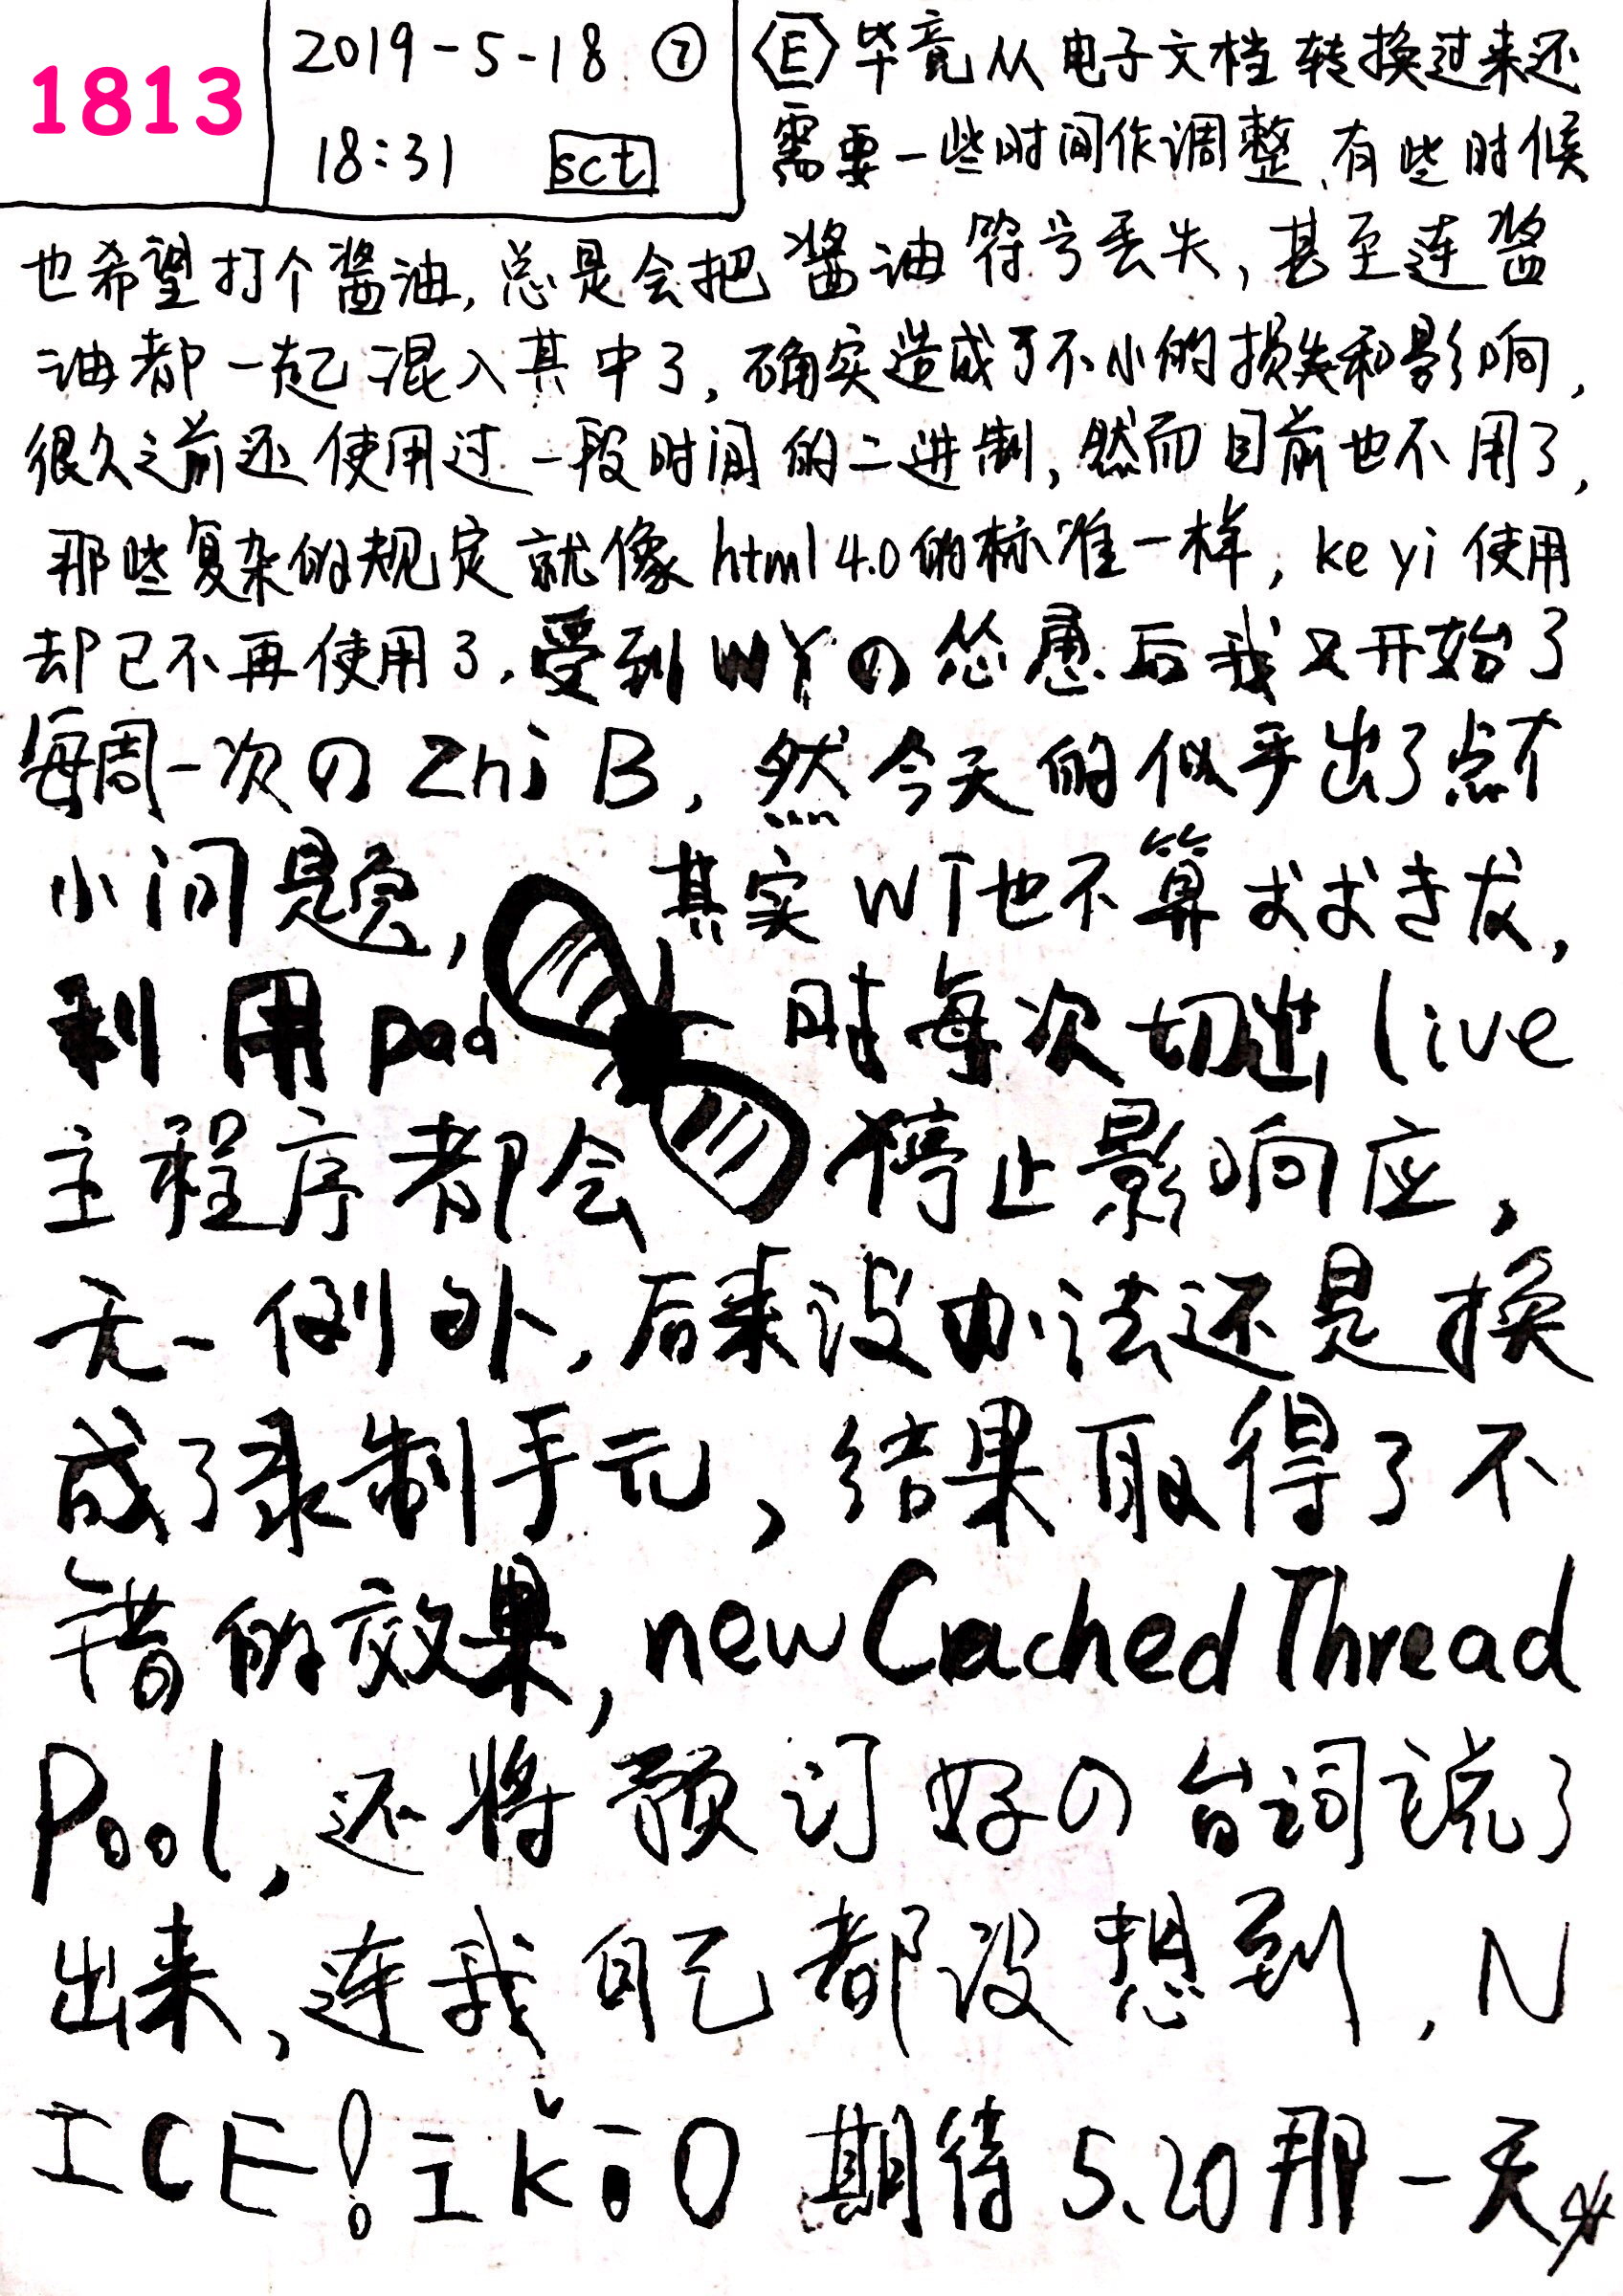 1813
2019-5-18 ⑦
18:31 sct
E 毕竟从电子文档转换过来还
需要一些时间作调整,有些时候
也希望打个酱油,总是会把酱油符号丢失,甚至连酱
油都一起混入其中了,确实造成了不小的损失和影响,
很久之前还使用过一段时间的二进制,然而目前也不用了,
那些复杂的规定就像html4.0的标准一样,keyi使用
却已不再使用了.受到WYの怂恿后我又开始了
每周一次の Zhi B,然今天的似乎出了点不
小问题,其实WT也不算
利用pad时每次切出live
主程序都会停止影响应,
无一例外,后来没办法还是换
成了录制手元,结果取得了不
错的效果,newCachedThread
Pool,还将预订好の台词说了
出来,连我自己都没想到,N
ICE! 期待5.20那一天